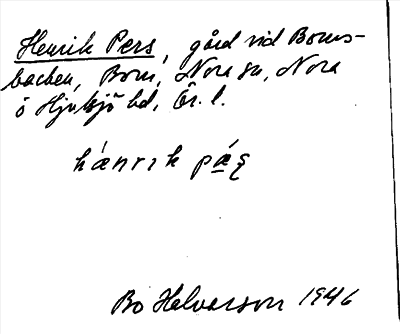 Henrik Pers, gård vid Borns-
backen, Born, Nora sn, Nora
o Hjulsjö hd, Ör. l.
hánrik
Bo Halvarson 1946